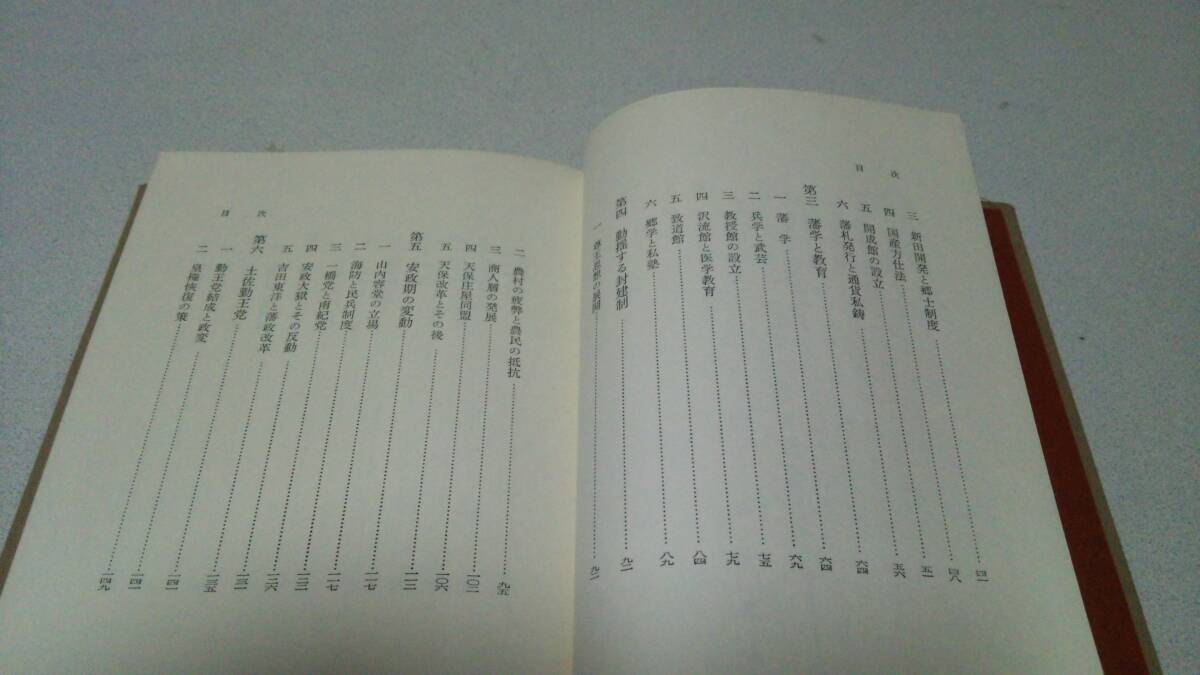 目次
三 新田開発と郷士制度……四一
四 国産方仕法……四八
五 開成館の設立……五一
六 藩札発行と通貨私鋳……五六
第三 藩学と教育……六四
一 藩学……六四
二 兵学と武芸……六九
三 教授館の設立……七五
四 沢流館と医学教育……七九
五 致道館……八四
六 郷学と私塾……八九
第四 動揺する封建制……九二
一 の展開……九二
二 農村の疲弊と農民の抵抗……九五
三 商人層の発展……一〇二
四 天保庄屋同盟……一〇六
五 天保改革とその後……一一二
第五 安政期の変動……一一七
一 山内容堂の立場……一一七
二 海防と民兵制度……一二二
三 一橋党と南紀党……一二六
四 安政大獄とその反動……一三一
五 吉田東洋と藩政改革……一三五
第六 土佐勤王党……一四一
一 勤王党結成と政変……一四一
二 皇権恢復の策……一四九
目次